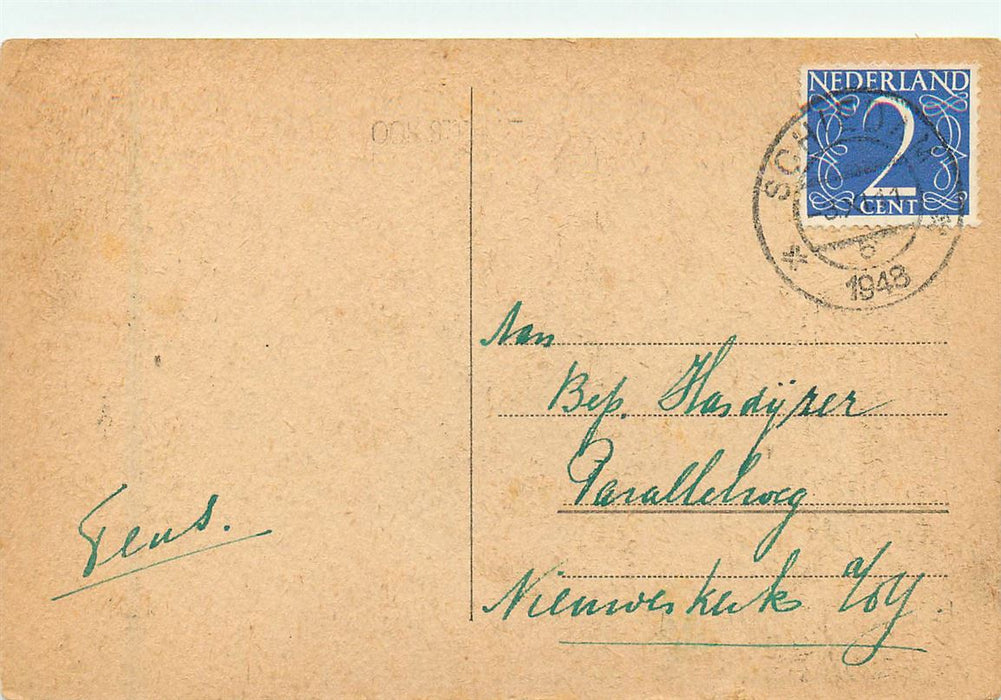 NEDERLAND
2
CENT
SCHIEDAM
6
1948
Aan
Bep. Hasdijzer
Parallelweg
Nieuwerkerk a/d IJ